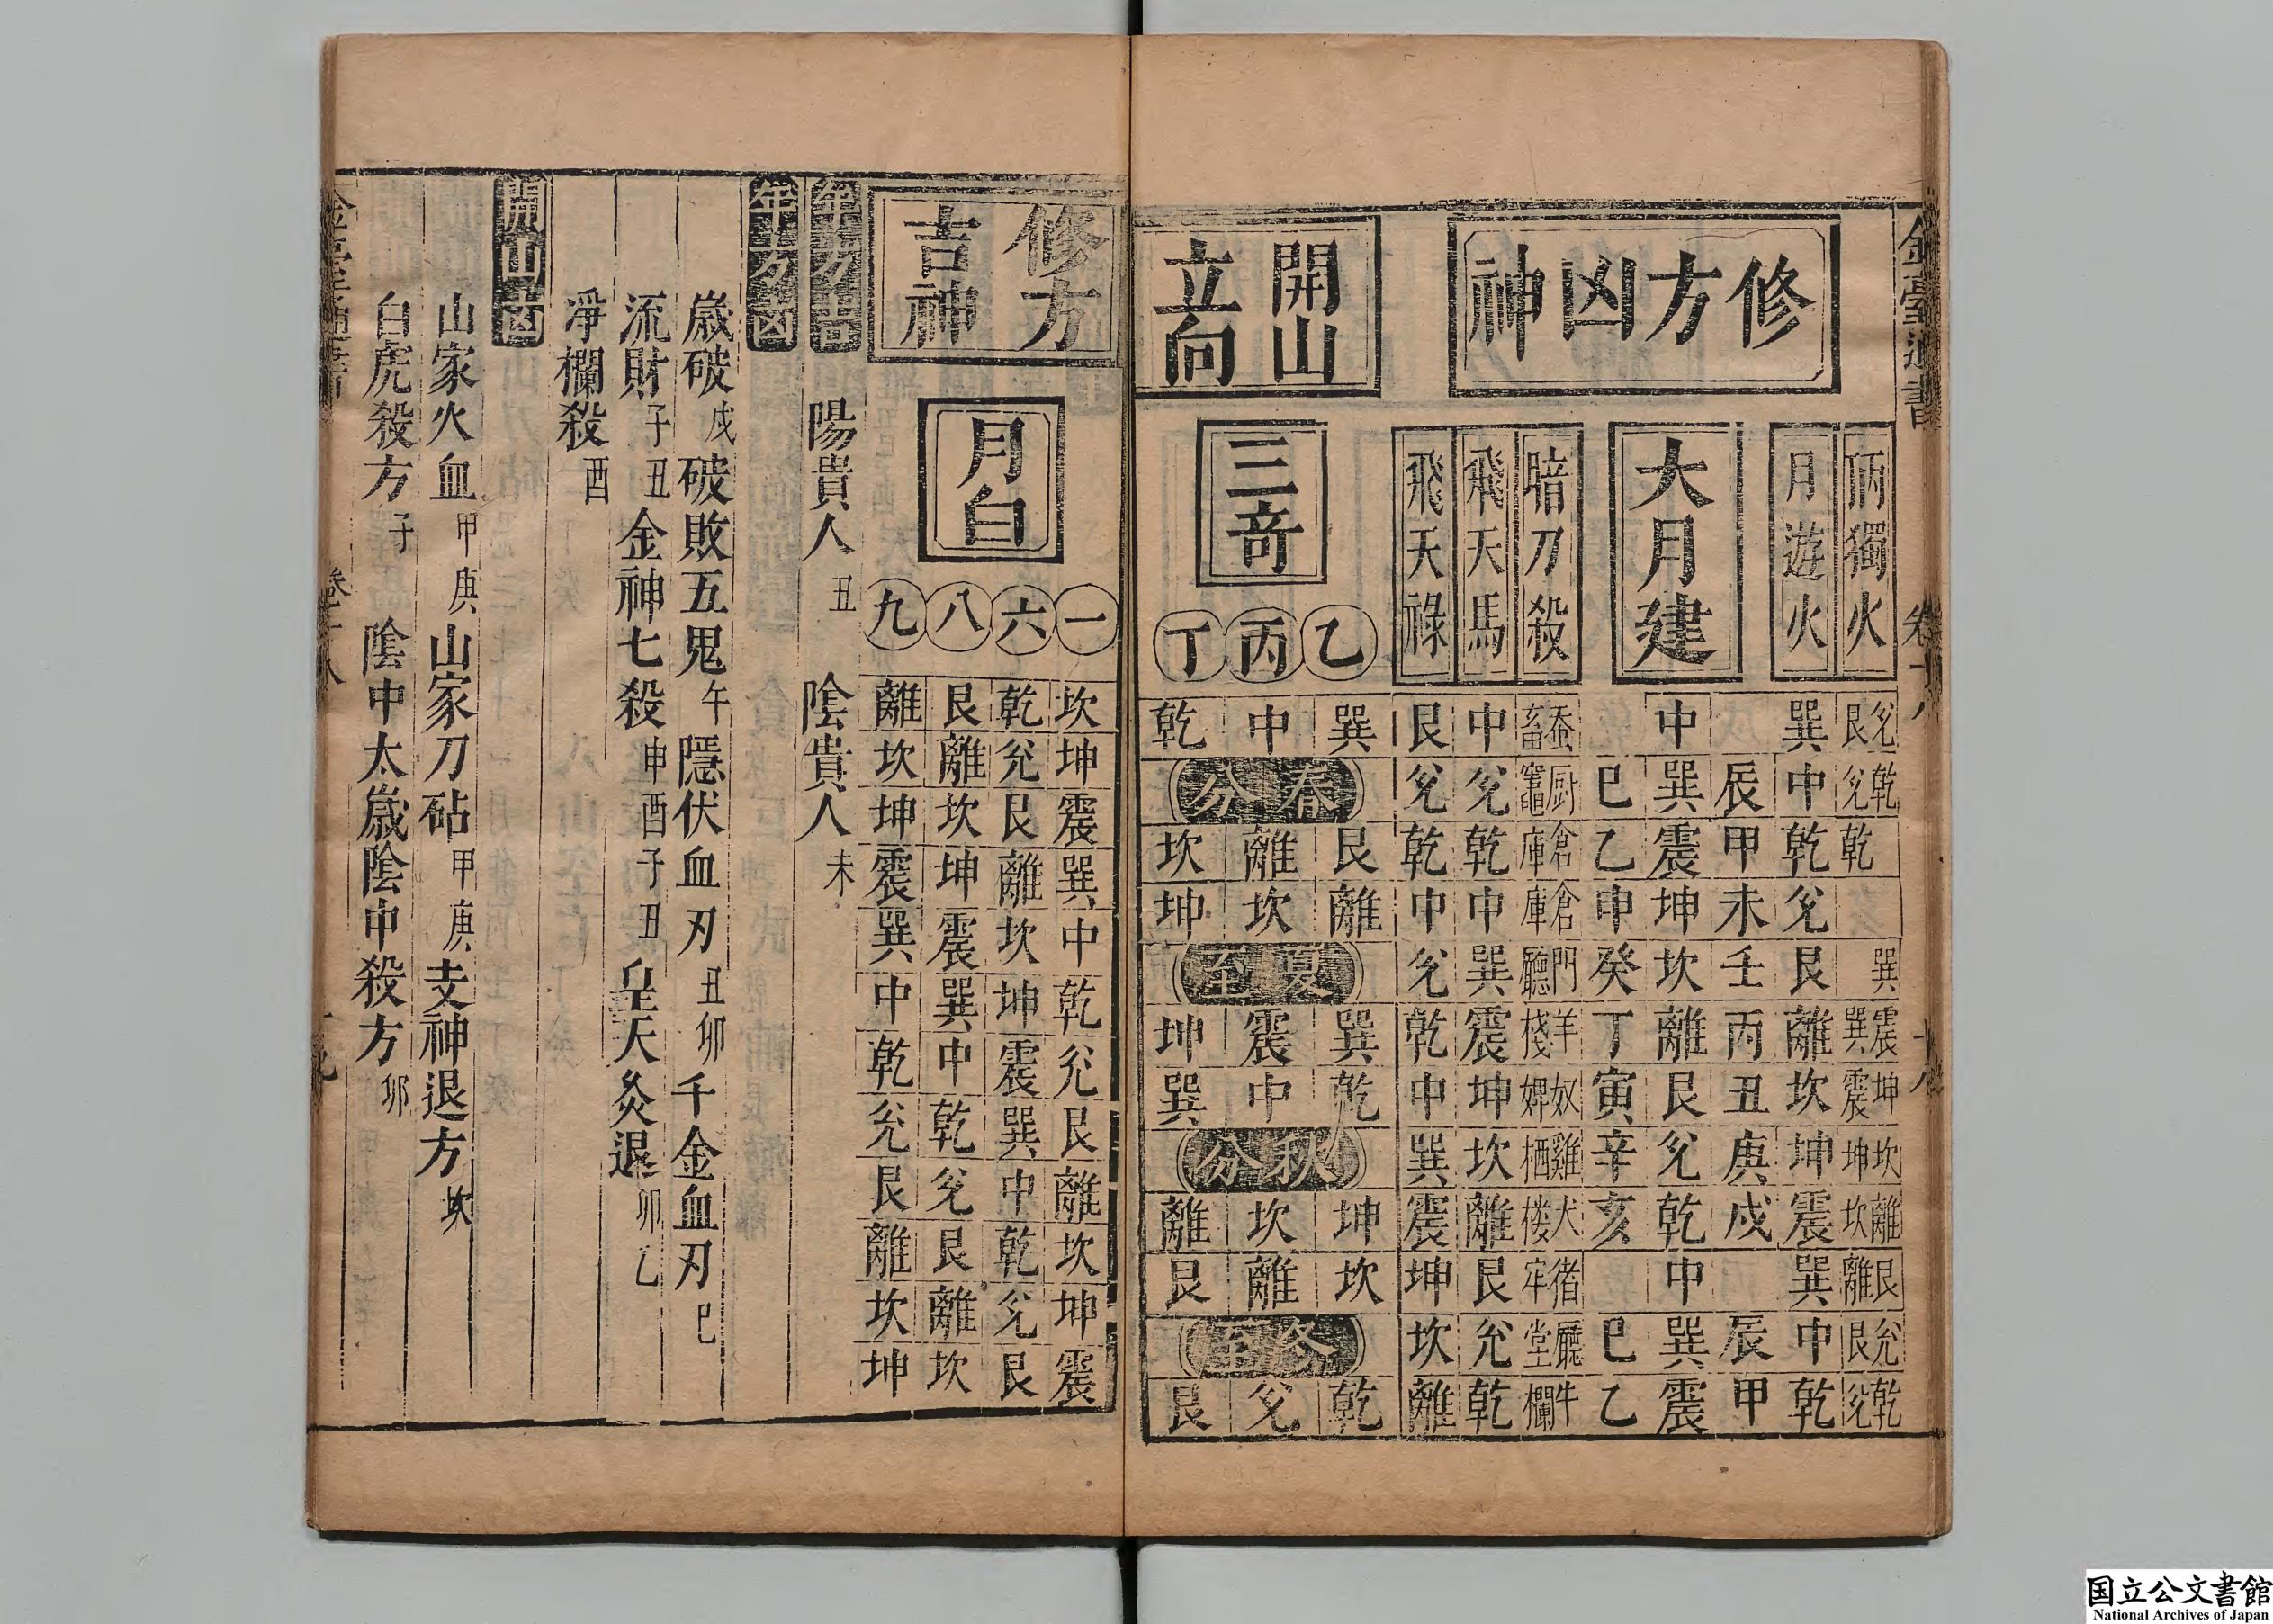 修方凶神
丙獨火 兊艮 乾兊 乾 巽 震巽 坤震 坎坤 離坎 艮離 兊艮 乾兊
月遊火 巽 中 乾 兊 艮 離 坎 坤 震 巽 中 乾
大月建
辰 甲 未 壬 丙 丑 庚 戌 辰 甲
中 巽 震 坤 坎 離 艮 兊 乾 中 巽 震
巳 乙 申 癸 丁 寅 辛 亥 巳 乙
暗刀殺 蚕畜 厨竈 倉庫 倉庫 門廳 羊棧 奴婢 雞栖 犬楼 猪牢 廳堂 牛欄
飛天馬 中 兊 乾 中 巽 震 坤 坎 離 艮 兊 乾
飛天祿 艮 兊 乾 中 兊 乾 中 巽 震 坤 坎 離
開山立向
三竒
乙 巽 艮 離 巽 乾 坤 坎 乾
丙 中 離 坎 震 中 坎 離 兊
丁 乾 坎 坤 坤 巽 離 艮 艮
春分 夏至 秋分 冬至
修方吉神
月白
一 坎 坤 震 巽 中 乾 兊 艮 離 坎 坤 震
六 乾 兊 艮 離 坎 坤 震 巽 中 乾 兊 艮
八 艮 離 坎 坤 震 巽 中 乾 兊 艮 離 坎
九 離 坎 坤 震 巽 中 乾 兊 艮 離 坎 坤
年方吉
陽貴人 丑 陰貴人 未
年方凶
歲破 戌 破敗五鬼 午 隱伏血刃 丑卯 千金血刃 巳
流財 子丑 金神七殺 申酉子丑 皇天灸退 卯乙
淨欄殺 酉
開山凶
山家火血 甲庚 山家刀砧 甲庚 支神退方 坎
白虎殺方 子 陰中太歲陰中殺方 卯
国立公文書館
National Archives of Japan